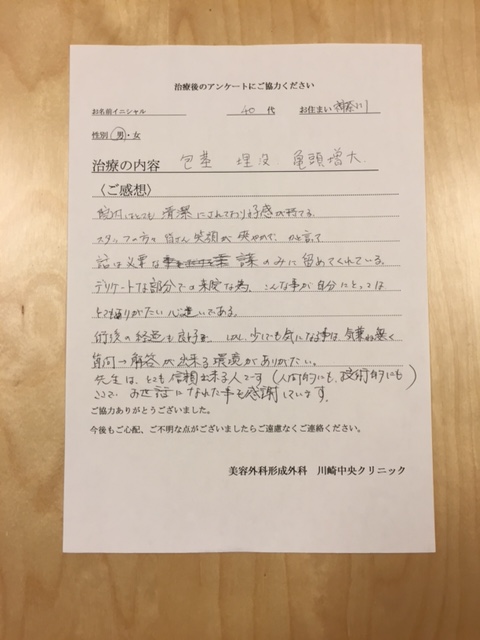 治療後のアンケートにご協力ください
お名前イニシャル 40 代 お住まい 神奈川
性別 男・女
治療の内容 包茎 埋没 亀頭増大
〈ご感想〉
院内はとても清潔にされており好感が持てる。
スタッフの方々皆さん笑顔が爽やかで、かと言って
話は必要な のみに留めてくれている。
デリケートな部分での来院な為、こんな事が自分にとっては
とてもありがたい心遣いである。
術後の経過も良好。しかし、少しでも気になる事は、気兼ね無く
質問→解答が出来る環境がありがたい。
先生は、とても信頼出来る人です(人間的にも、技術的にも)
ここで、お世話になれた事を感謝しています。
ご協力ありがとうございました。
今後もご心配、ご不明な点がございましたらご遠慮なくご連絡ください。
美容外科形成外科 川崎中央クリニック